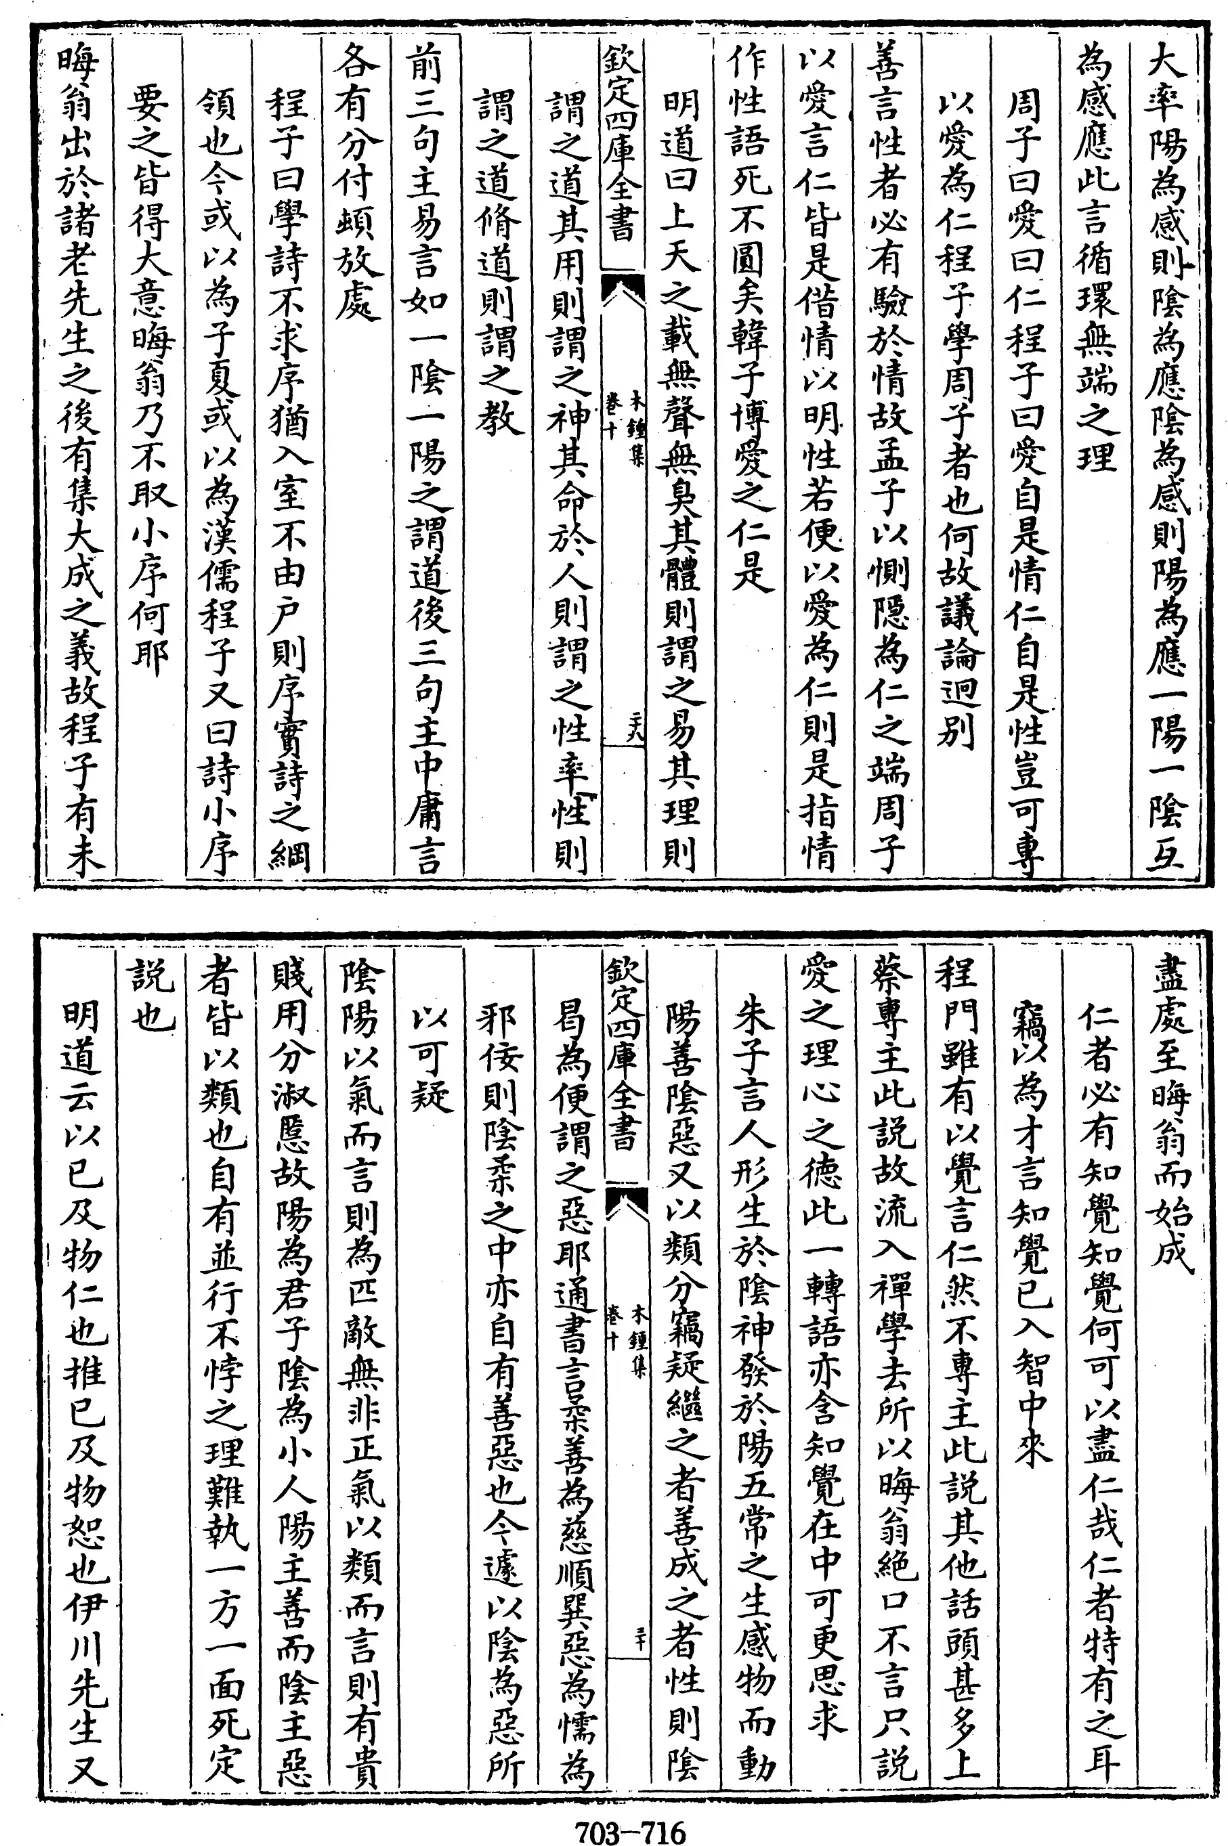 大率陽為感則陰為應陰為感則陽為應一陽一陰互
為感應此言循環無端之理
周子曰愛曰仁程子曰愛自是情仁自是性豈可專
以愛為仁程子學周子者也何故議論迥别
善言性者必有驗於情故孟子以惻隱為仁之端周子
以愛言仁皆是借情以明性若便以愛為仁則是指情
作性語死不圓矣韓子博愛之仁是
明道曰上天之載無聲無臭其體則謂之易其理則
欽定四庫全書
木鍾集
卷十
二十九
謂之道其用則謂之神其命於人則謂之性率性則
謂之道脩道則謂之教
前三句主易言如一陰一陽之謂道後三句主中庸言
各有分付頓放處
程子曰學詩不求序猶入室不由户則序實詩之綱
領也今或以為子夏或以為漢儒程子又曰詩小序
要之皆得大意晦翁乃不取小序何耶
晦翁出於諸老先生之後有集大成之義故程子有未
盡處至晦翁而始成
仁者必有知覺知覺何可以盡仁哉仁者特有之耳
竊以為才言知覺已入智中來
程門雖有以覺言仁然不專主此説其他話頭甚多上
蔡專主此説故流入禪學去所以晦翁絶口不言只説
愛之理心之德此一轉語亦含知覺在中可更思求
朱子言人形生於陰神發於陽五常之生感物而動
陽善陰惡又以類分竊疑繼之者善成之者性則陰
欽定四庫全書
木鍾集
卷十
三十
曷為便謂之惡耶通書言柔善為慈順巽惡為懦為
邪佞則陰柔之中亦自有善惡也今遽以陰為惡所
以可疑
陰陽以氣而言則為匹敵無非正氣以類而言則有貴
賤用分淑慝故陽為君子陰為小人陽主善而陰主惡
者皆以類也自有並行不悖之理難執一方一面死定
説也
明道云以已及物仁也推已及物恕也伊川先生又
703-716